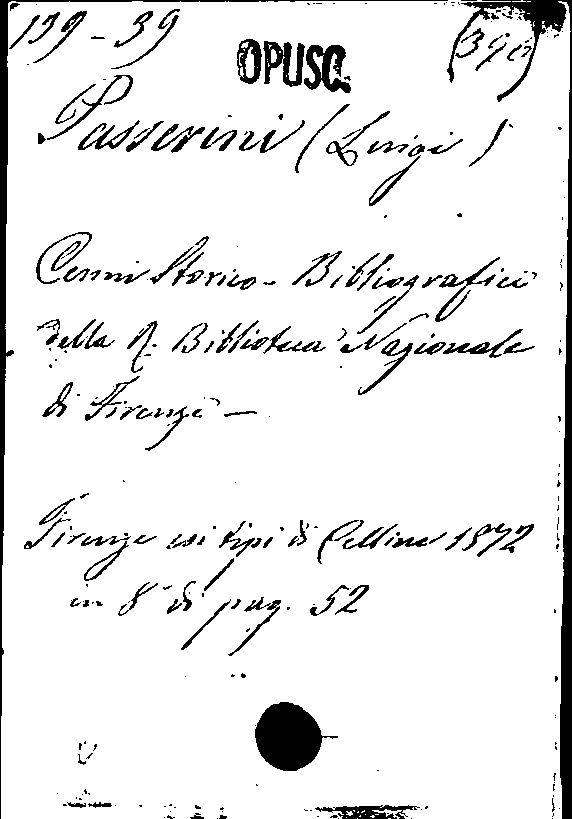 139-39
OPUSC.
(390)
Passerini (Luigi)
Cenni Storico-Bibliografici
della R. Biblioteca Nazionale
di Firenze —
Firenze coi tipi di Cellini 1872
in 8° di pag. 52